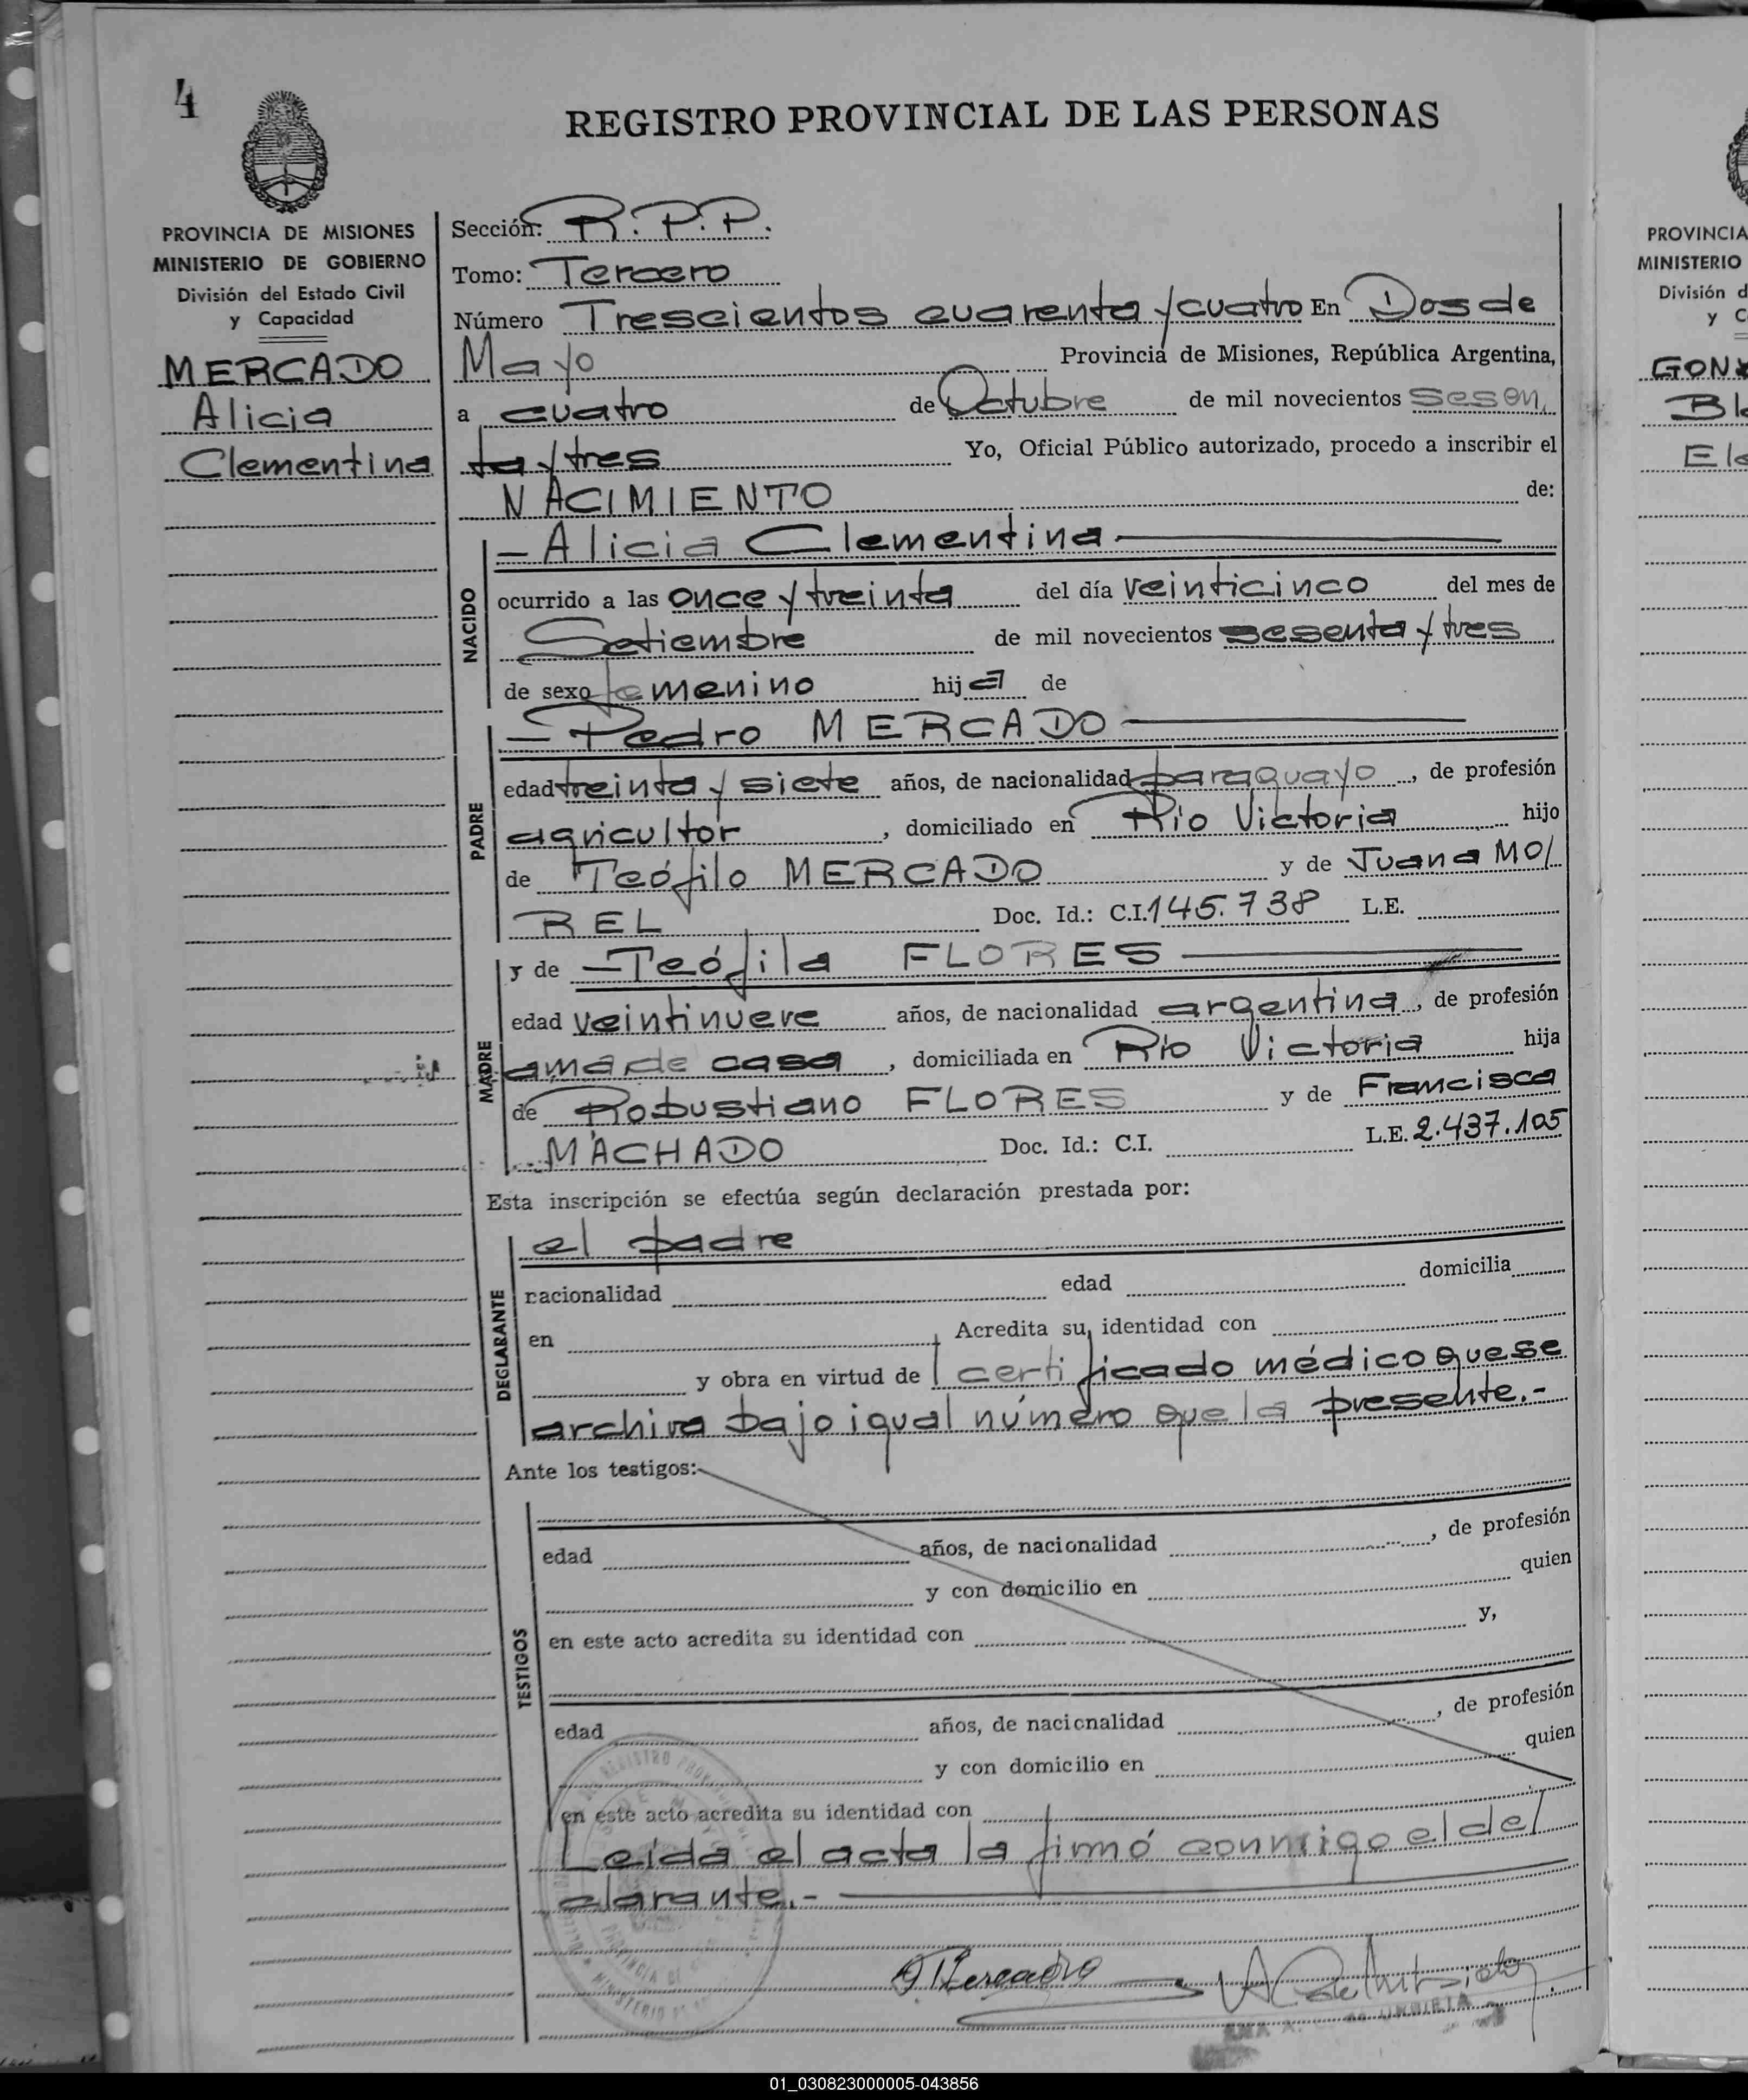 4
REGISTRO PROVINCIAL DE LAS PERSONAS
PROVINCIA DE MISIONES
MINISTERIO DE GOBIERNO
División del Estado Civil
y Capacidad
MERCADO
Alicia
Clementina
Sección: R.P.P.
Tomo: Tercero
Número Trescientos cuarenta y cuatro En Dos de
Mayo Provincia de Misiones, República Argentina,
a cuatro de Octubre de mil novecientos sesen
ta y tres Yo, Oficial Público autorizado, procedo a inscribir el
NACIMIENTO de:
NACIDO
—Alicia Clementina
ocurrido a las once y treinta del día veinticinco del mes de
Setiembre de mil novecientos sesenta y tres
de sexo femenino hija de
PADRE
—Pedro MERCADO
edad treinta y siete años, de nacionalidad paraguayo, de profesión
agricultor, domiciliado en Río Victoria hijo
de Teófilo MERCADO y de Juana MO/
REL Doc. Id.: C.I. 145.738 L.E.
MADRE
y de —Teófila FLORES
edad veintinueve años, de nacionalidad argentina, de profesión
ama de casa, domiciliada en Río Victoria hija
de Robustiano FLORES y de Francisca
MACHADO Doc. Id.: C.I. L.E. 2.437.105
Esta inscripción se efectúa según declaración prestada por:
DEGLARANTE
el padre
nacionalidad edad domicilia
en Acredita su identidad con
y obra en virtud de certificado médico que se
archiva bajo igual número que la presente.-
Ante los testigos:
TESTIGOS
edad años, de nacionalidad , de profesión
y con domicilio en quien
en este acto acredita su identidad con y,
edad años, de nacionalidad , de profesión
y con domicilio en quien
en este acto acredita su identidad con
Leída el acta la firmó conmigo el de/
clarante.-
Mercado
PROVINCIA
MINISTERIO
División d
y C
01_030823000005-043856